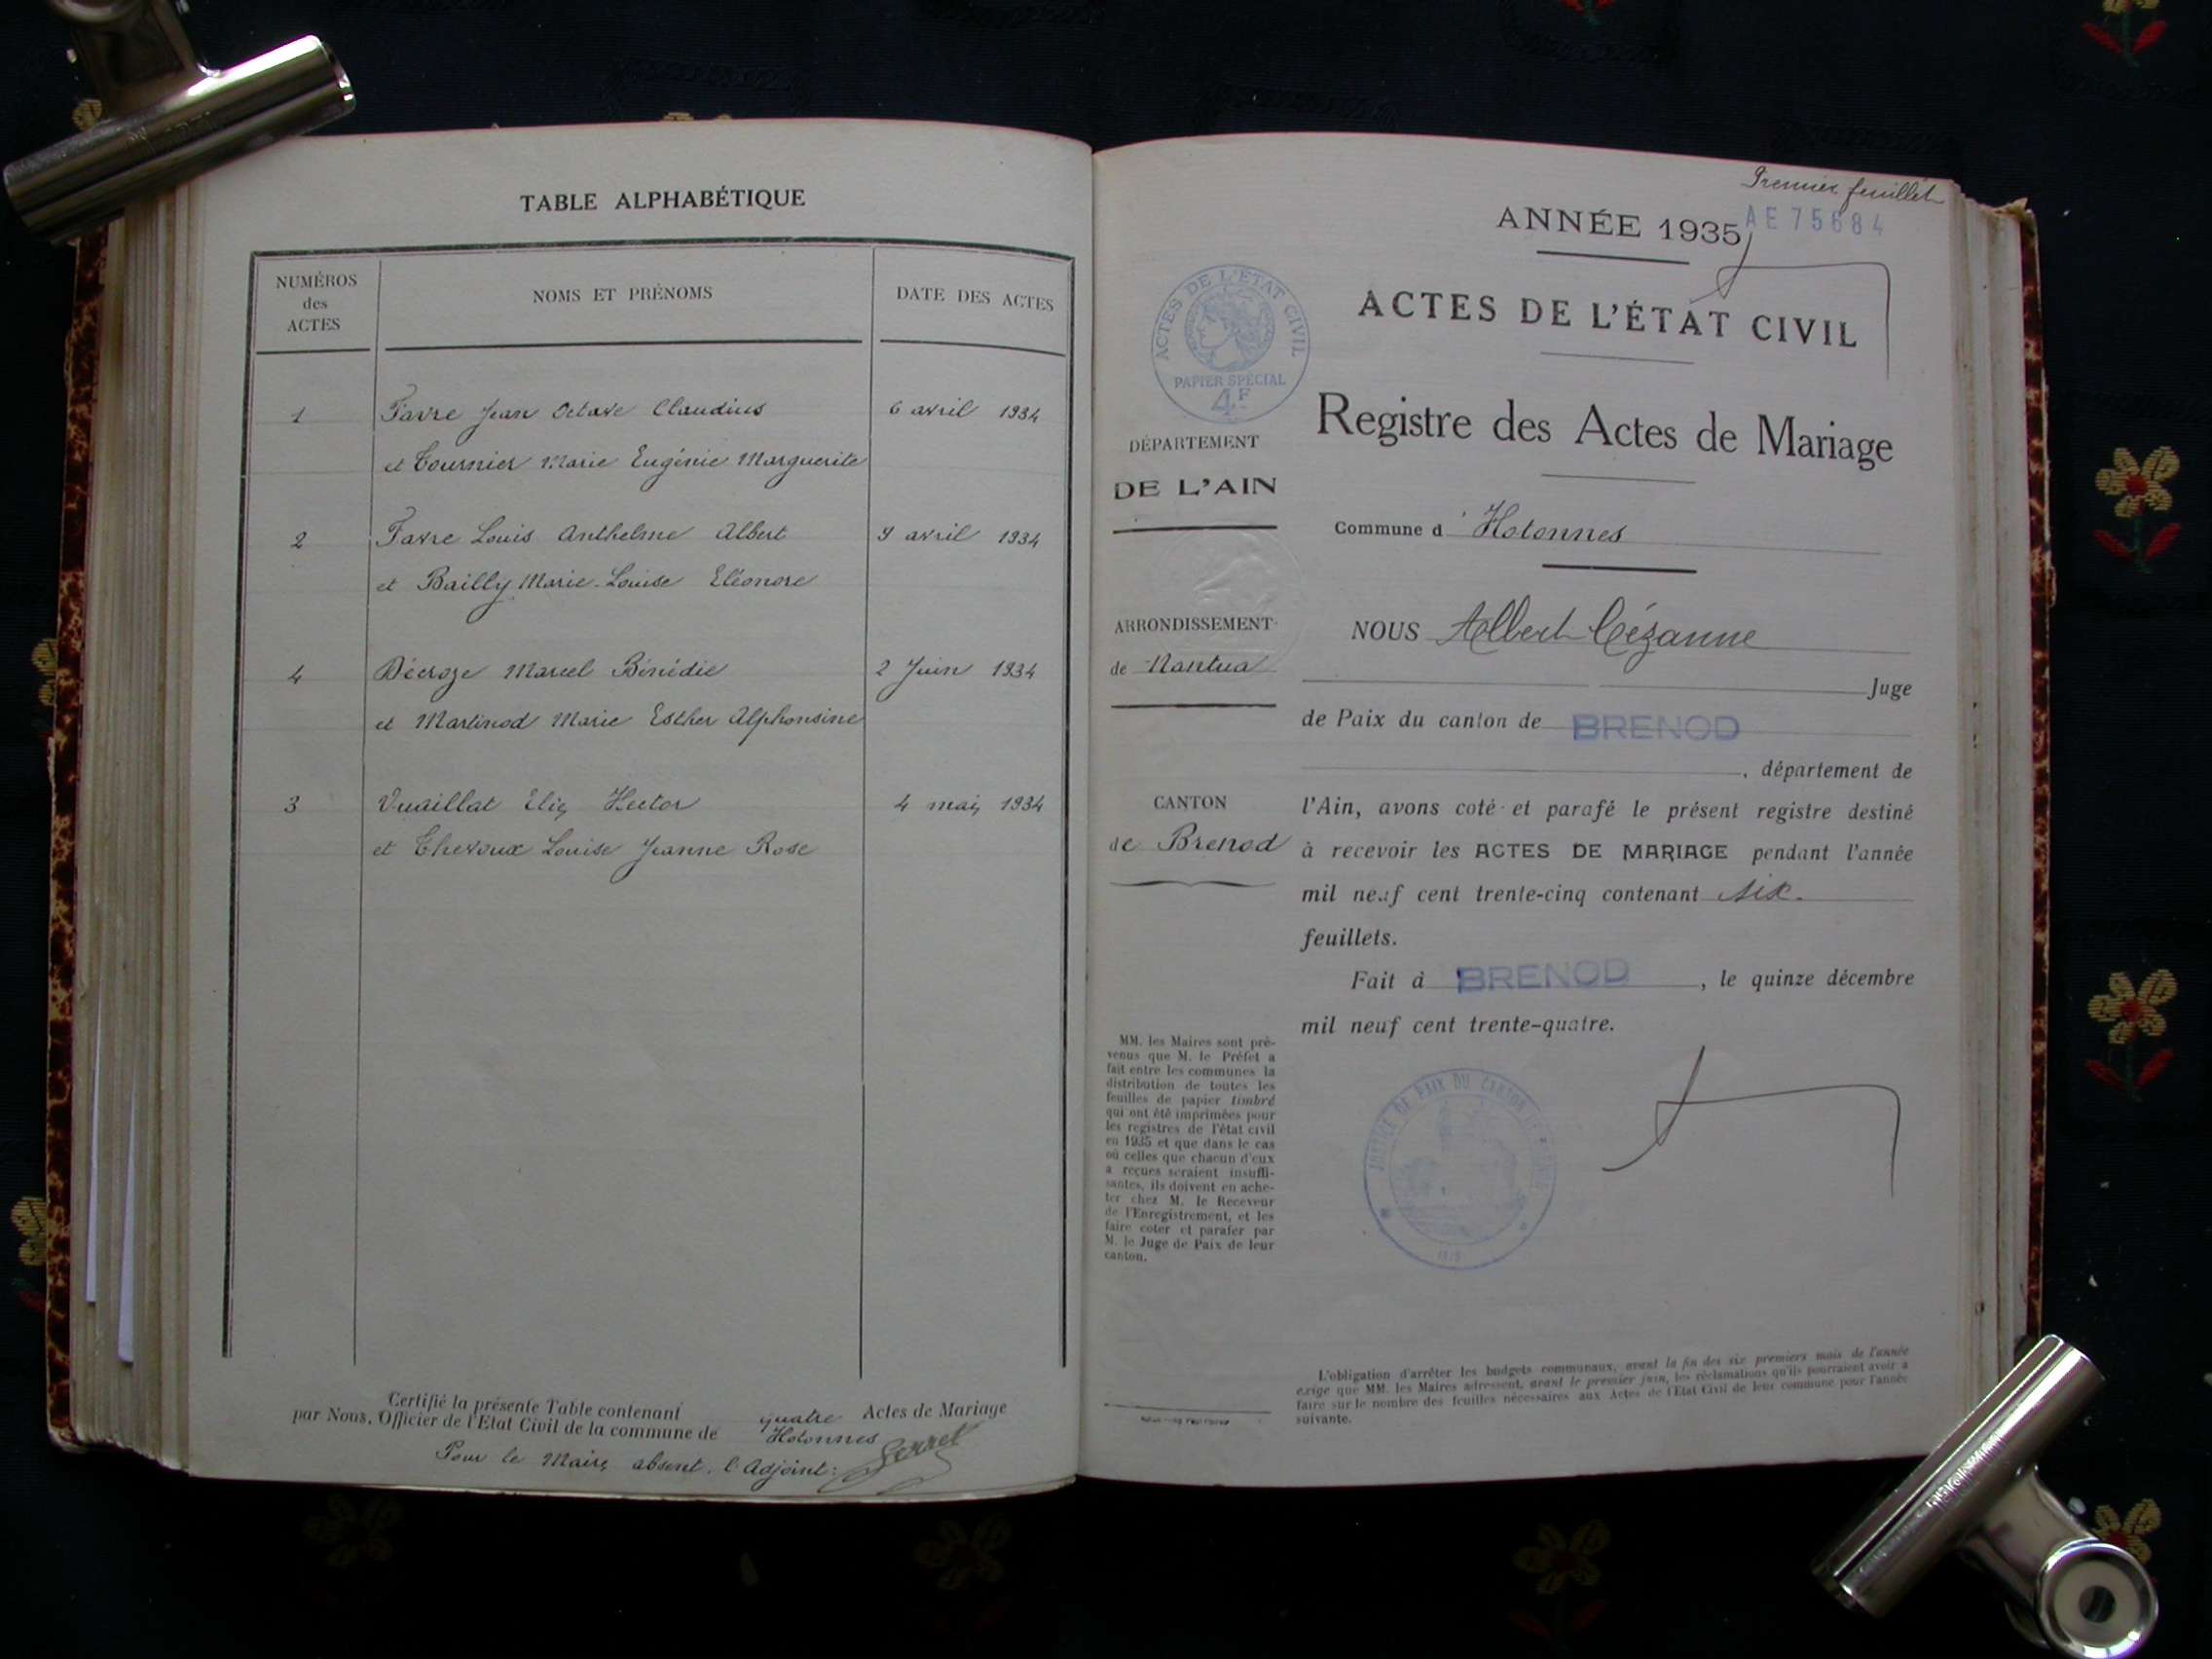 TABLE ALPHABÉTIQUE
NUMÉROS
des
ACTES
NOMS ET PRÉNOMS
DATE DES ACTES
1 Favre Jean Octave Claudius 6 avril 1934
et Tournier Marie Eugénie Marguerite
2 Favre Louis Anthelme Albert 9 avril 1934
et Bailly Marie-Louise Eléonore
4 Décroze Marcel Bénédie 2 Juin 1934
et Martinod Marie Esther Alphonsine
3 Vuaillat Elie Hector 4 mai 1934
et Chevoux Louise Jeanne Rose
Certifié la présente Table contenant quatre Actes de Mariage
par Nous, Officier de l'Etat Civil de la commune de Hotonnes
Pour le Maire absent, l'Adjoint:
Premier feuillet
ANNÉE 1935
AE 75684
ACTES DE L'ÉTAT CIVIL
PAPIER SPÉCIAL
4F
ACTES DE L'ÉTAT CIVIL
Registre des Actes de Mariage
DÉPARTEMENT
DE L'AIN
Commune d'Hotonnes
ARRONDISSEMENT
de Nantua
CANTON
de Brenod
NOUS Albert Cézanne
Juge
de Paix du canton de BRENOD
, département de
l'Ain, avons coté et parafé le présent registre destiné
à recevoir les ACTES DE MARIAGE pendant l'année
mil neuf cent trente-cinq contenant six
feuillets.
Fait à BRENOD, le quinze décembre
mil neuf cent trente-quatre.
MM. les Maires sont pré-
venus que M. le Préfet a
fait entre les communes la
distribution de toutes les
feuilles de papier timbré
qui ont été imprimées pour
les registres de l'état civil
en 1935 et que dans le cas
où celles que chacun d'eux
a reçues seraient insuffi-
santes, ils doivent en ache-
ter chez M. le Receveur
de l'Enregistrement, et les
faire coter et parafer par
M. le Juge de Paix de leur
canton.
JUSTICE DE PAIX DU CANTON DE BRENOD
L'obligation d'arrêter les budgets communaux, avant la fin des six premiers mois de l'année
exige que MM. les Maires adressent, avant le premier juin, les réclamations qu'ils pourraient avoir à
faire sur le nombre des feuilles nécessaires aux Actes de l'Etat Civil de leur commune pour l'année
suivante.